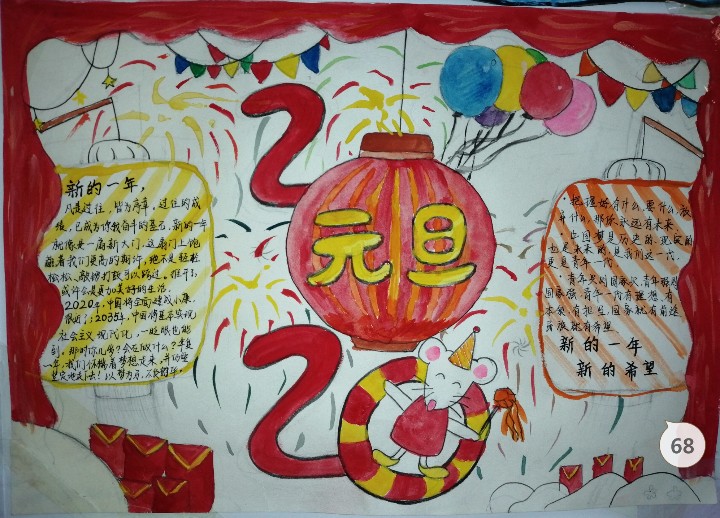 新的一年,
凡是过往,皆为序章,过往的成
绩,已成为你我奋斗的基石,新的一年
就像是一扇新大门,这扇门上饱
蕴着我们更高的期许,绝不是轻轻
松松、敲锣打鼓可以跨过。推开
或许会是更加美好的生活。
2020年,中国将全面建成小康。
2035年,中国将基本实现
社会主义现代化,一眨眼也能
到。那时你几岁?会在做什么?
年,我们怀揣着梦想走来,
20
元旦
20
把握好今天,要什么
永远有未来。
中国梦是历史的、现实的
也是未来的,是我们这一代,
更是青年一代
青年兴则国家兴,青年强则
国家强,青年一代有理想、有
本领、有担当,国家就有前途
民族就有希望
新的一年
新的希望
68